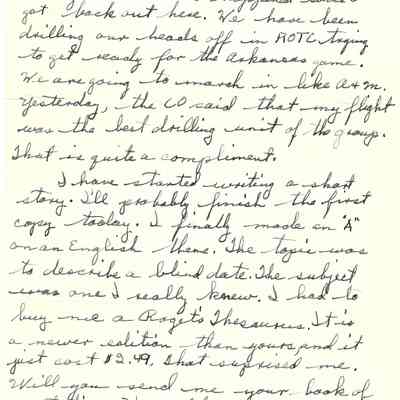 got back out here. We have been
drilling our heads off in ROTC trying
to get ready for the Arkansas game.
We are going to march in like A+M.
Yesterday, the CO said that my flight
was the best drilling unit of the group.
That is quite a compliment.
I have started writing a short
story. I'll probably finish the first
copy today. I finally made an "A"
on an English theme. The topic was
to describe a blind date. The subject
was one I really knew. I had to
buy me a Roget's Thesaurus. It is
a newer edition than yours, and it
just cost $2.49. That suprised me.
Will you send me your book of